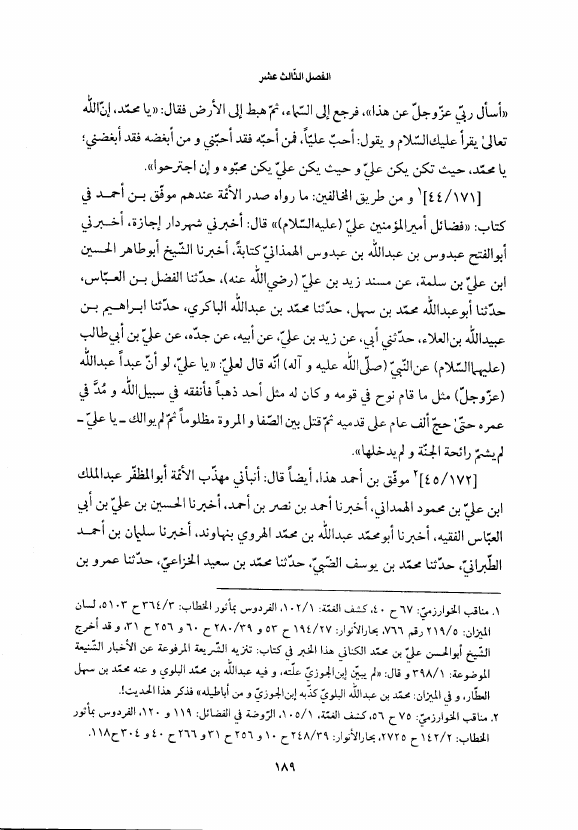 الفصل الثّالث عشر
«أسأل ربّي عزّوجلّ عن هذا»، فرجع إلى السّماء، ثمّ هبط إلى الأرض فقال: «يا محمّد، إنّ‌الله
تعالىٰ يقرأ عليك‌السّلام و يقول: أحبّ عليّاً، فمن أحبّه فقد أحبّني و من أبغضه فقد أبغضني؛
يا محمّد، حيث تكن يكن عليّ و حيث يكن عليّ يكن محبّوه و إن اجترحوا».
[٤٤/١٧١]١ و من طريق المخالفين: ما رواه صدر الأئمّة عندهم موفّق بـن أحمـد في
كتاب: «فضائل أميرالمؤمنين عليّ (عليه‌السّلام)» قال: أخبرني شهردار إجازة، أخـبرني
أبوالفتح عبدوس بن عبدالله بن عبدوس الهمذاني كتابةً، أخبرنا الشّيخ أبوطاهر الحسين
ابن عليّ بن سلمة، عن مسند زيد بن عليّ (رضي‌الله عنه)، حدّثنا الفضل بـن العبّاس،
حدّثنا أبوعبدالله محمّد بن سهل، حدّثنا محمّد بن عبدالله الباكري، حدّثنا ابـراهـيم بـن
عبيدالله بن‌العلاء، حدّثني أبي، عن زيد بن عليّ، عن أبيه، عن جدّه، عن عليّ بن أبي‌طالب
(عليهماالسّلام) عن‌النّبيّ (صلّى‌الله عليه و آله) أنّه قال لعليّ: «يا عليّ، لو أنّ عبداً عبدالله
(عزّوجلّ) مثل ما قام نوح في قومه و كان له مثل أحد ذهباً فأنفقه في سبيل‌الله و مُدَّ في
عمره حتّىٰ حجّ ألف عام على قدميه ثمّ قتل بين الصّفا و المروة مظلوماً ثمّ لم يوالك ـ يا عليّ ـ
لم يشمّ رائحة الجنّة و لم يدخلها».
[٤٥/١٧٢]٢ موفّق بن أحمد هذا، أيضاً قال: أنبأني مهذّب الأئمّة أبوالمظفّر عبدالملك
ابن عليّ بن محمود الهمداني، أخبرنا أحمد بن نصر بن أحمد، أخبرنا الحسين بن عليّ بن أبي
العبّاس الفقيه، أخبرنا أبومحمّد عبدالله بن محمّد الهروي بنهاوند، أخبرنا سليمان بن أحمـد
الطّبرانيّ، حدّثنا محمّد بن يوسف الضّبّي، حدّثنا محمّد بن سعيد الخزاعيّ، حدّثنا عمرو بن
١. مناقب الخوارزميّ: ٦٧ ح ٤٠، كشف الغمّة: ١٠٢/١، الفردوس بمأثور الخطاب: ٣٦٤/٣ ح ٥١٠٣، لسان
الميزان: ٢١٩/٥ رقم ٧٦٦، بحارالأنوار: ١٩٤/٢٧ ح ٥٣ و ٢٨٠/٣٩ ح ٦٠ و ٢٥٦ ح ٣١، و قد أخرج
الشّيخ أبوالحسن عليّ بن محمّد الكناني هذا الخبر في كتاب: تنزيه الشّريعة المرفوعة عن الأخبار الشّنيعة
الموضوعة: ٣٩٨/١ و قال: «لم يبيّن إبن‌الجوزيّ علّته، و فيه عبدالله بن محمّد البلوي و عنه محمّد بن سهل
العطّار، و في الميزان: محمّد بن عبدالله البلويّ كذّبه إبن‌الجوزيّ و من أباطيله» فذكر هذا الحديث!.
٢. مناقب الخوارزميّ: ٧٥ ح ٥٦، كشف الغمّة، ١٠٥/١، الرّوضة في الفضائل: ١١٩ و ١٢٠، الفردوس بمأثور
الخطاب: ١٤٢/٢ ح ٢٧٢٥، بحارالأنوار: ٢٤٨/٣٩ ح ١٠ و ٢٥٦ ح ٣١ و ٢٦٦ ح ٤٠ و ٣٠٤ ح ١١٨.
١٨٩